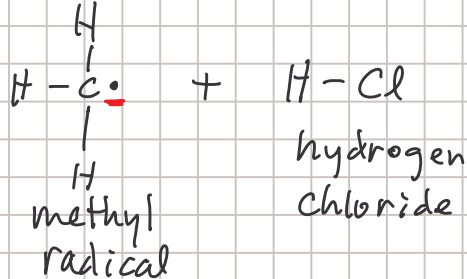 H
H - C • + H - Cl
H
methyl
radical
hydrogen
chloride